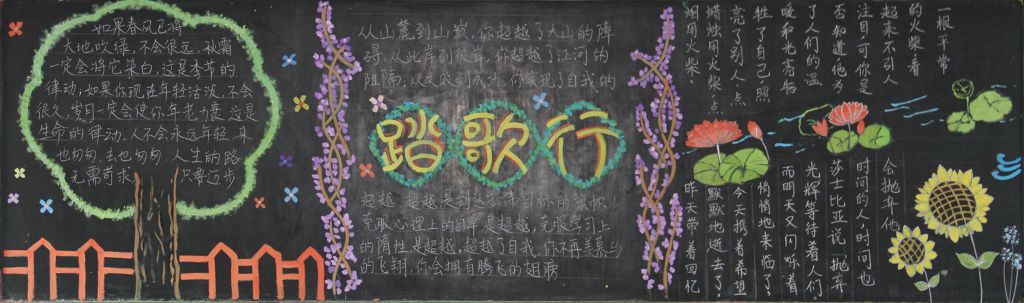 如果春风已将
大地吹绿,不会很远,秋霜
一定会将它染白,这是季节的
律动,如果你现在年轻活泼,不会
很久,岁月一定会使你年老力衰,这是
生命的律动,人不会永远年轻,来
也匆匆,去也匆匆,人生的路
无需苛求 只要迈步
从山麓到山巅,你超越了大山的障
碍,从此岸到彼岸,你超越了江河的
阻隔,从失败到成功,你实现了自我的
踏歌行
超越,超越是到达
克服心理上的自卑是超越,克服学习上
的惰性是超越,超越了自我,你不再羡慕鸟
的飞翔,你会拥有腾飞的翅膀
一根平常
的火柴,看
起来不引人
注目,可你是
否知道,他为
了人们的温
暖和光亮牺
牲了自己,照
亮了别人,点
蜡烛用火柴,点
烟用火柴
会抛弃他
时间的人,时间也
莎士比亚说,抛弃
光辉等待着人们
而明天又闪烁着
悄悄地来临了,
今天携着希望
默默地逝去了,
昨天带着回忆